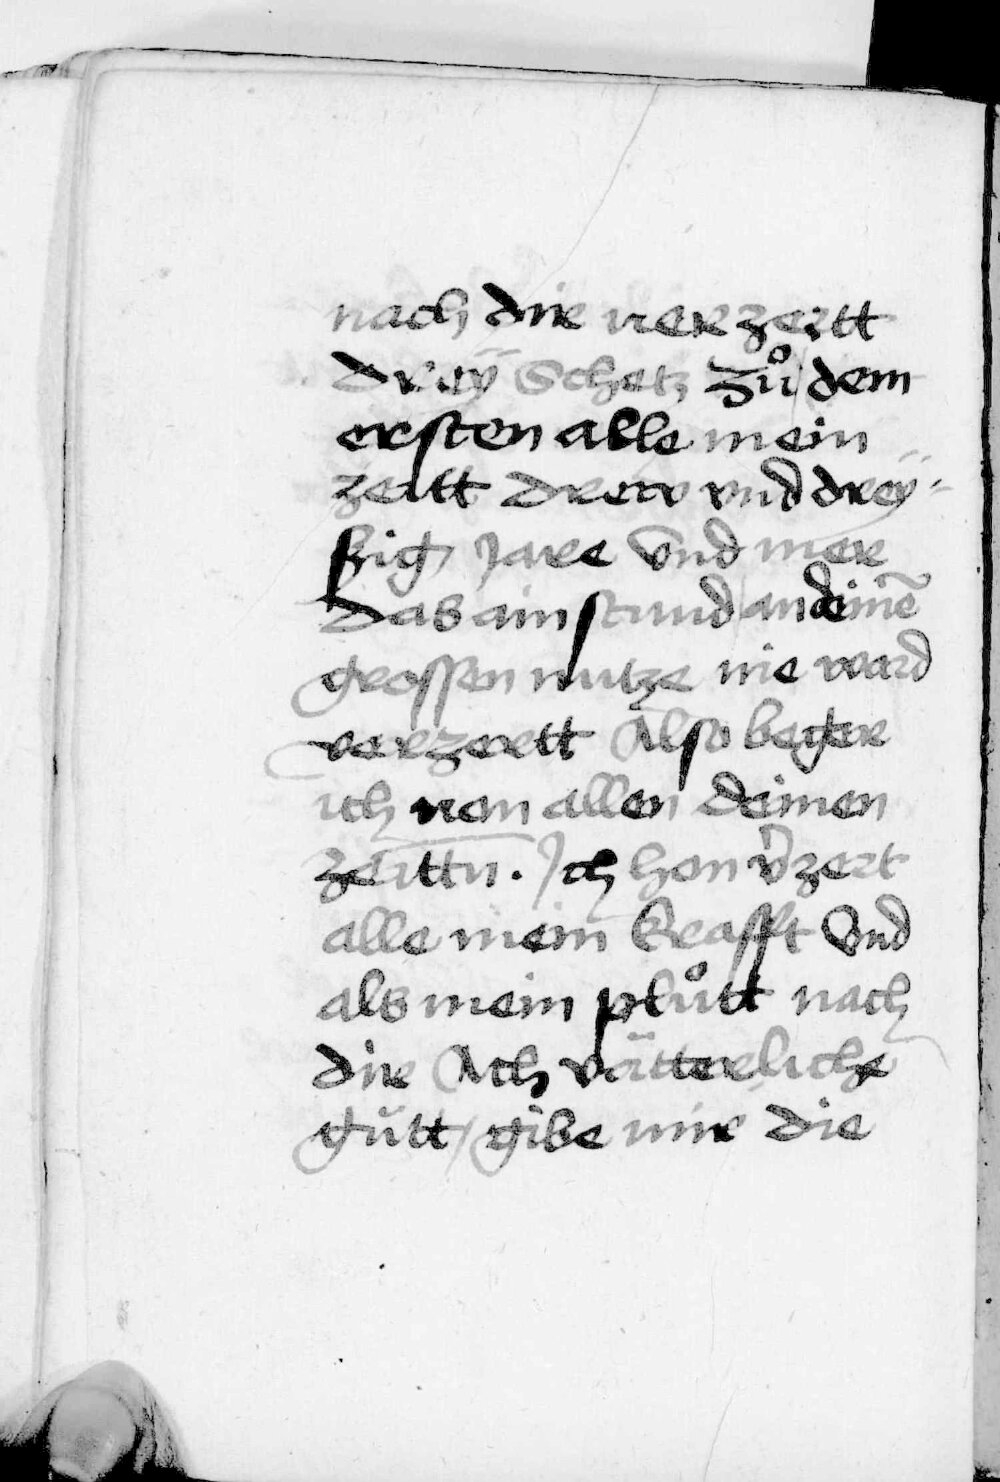 nach dir verzertt
dreÿ Schetz Zuͦ dem
ersten alle mein
zeitt drew vnd dreÿ-
ßig Jare Vnd mer
Das ain stund an deinē
grossen nutze nie ward
verzertt Also beger
ich von allen deinen
zeittn̄. Ich hon v̉zert
alle mein krafft Vnd
als mein pluͦtt nach
dir Ach vätterliche
gütt / gibe mir die